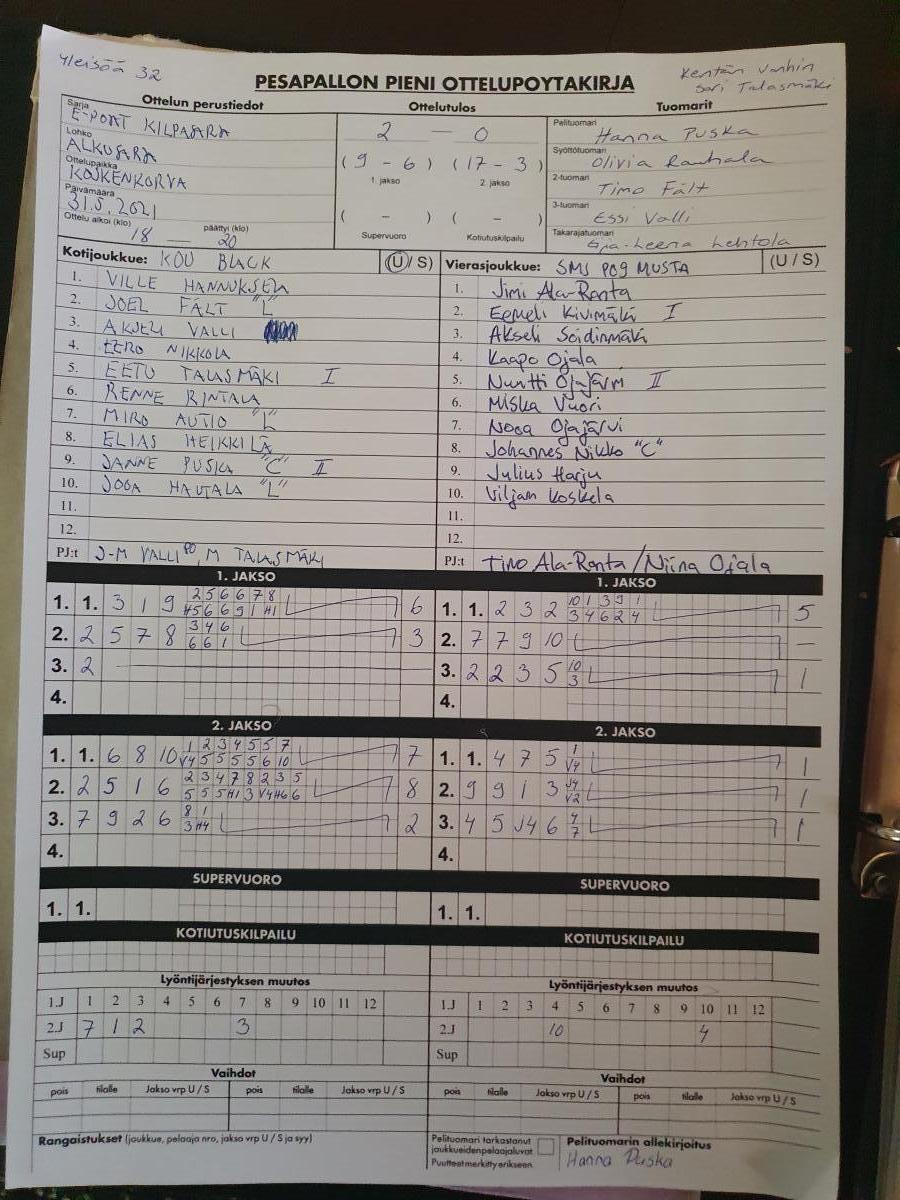 Yleisöä 32
Kentän vanhin
Sari Talasmäki
PESAPALLON PIENI OTTELUPOYTAKIRJA
Ottelun perustiedot
Ottelutulos
Tuomarit
Sarja
E-POJAT KILPASARJA
Lohko
ALKUSARJA
Ottelupaikka
KOSKENKORVA
Päivämäärä
31.5.2021
Ottelu alkoi (klo) 18 — päättyi (klo) 20
2 — 0
(9 - 6) (17 - 3)
1. jakso 2. jakso
( - ) ( - )
Supervuoro Kotiutuskilpailu
Pelituomari Hanna Puska
Syöttötuomari Olivia Rauhala
2-tuomari Timo Fält
3-tuomari Essi Valli
Takarajatuomari Lehtola
Kotijoukkue: KOU BLACK (U / S)
1. VILLE HANNUKSEN
2. JOEL FÄLT "L"
3. AKSELI VALLI
4. EERO NIKKOLA
5. EETU TALASMÄKI I
6. RENNE RINTALA
7. MIRO AUTIO "L"
8. ELIAS HEIKKILÄ
9. JANNE PUSKA "C" II
10. JOOA HAUTALA "L"
11.
12.
PJ:t J-M VALLI PO, M TALASMÄKI
Vierasjoukkue: SMS P09 MUSTA (U / S)
1. Jimi Ala-Ranta
2. Eemeli Kivimäki I
3. Akseli Soidinmäki
4. Kaapo Ojala
5. Nuutti Ojajärvi II
6. Miska Vuori
7. Nooa Ojajärvi
8. Johannes Nikko "C"
9. Julius Harju
10. Viljam Koskela
11.
12.
PJ:t Timo Ala-Ranta / Niina Ojala
1. JAKSO
1. 1. 3 1 9 2 5 6 6 7 8 6
H5 6 6 9 1 H1
2. 2 5 7 8 3 4 6 3
6 6 1
3. 2
4.
1. JAKSO
1. 1. 2 3 2 10 1 3 9 1 5
3 4 6 2 4
2. 7 7 9 10 —
3. 2 2 3 5 10 1
3
4.
2. JAKSO
1. 1. 6 8 10 1 2 3 4 5 5 7 7
V4 5 5 5 5 6 10
2. 2 5 1 6 2 3 4 7 8 2 3 5 8
5 5 5 H1 3 V4 H6 6
3. 7 9 2 6 8 1 2
3 H4
4.
2. JAKSO
1. 1. 4 7 5 1 1
V4
2. 9 9 1 3 J4 1
V2
3. 4 5 J4 6 4 1
7
4.
SUPERVUORO
1. 1.
SUPERVUORO
1. 1.
KOTIUTUSKILPAILU
KOTIUTUSKILPAILU
Lyöntijärjestyksen muutos
1.J 1 2 3 4 5 6 7 8 9 10 11 12
2.J 7 1 2 3
Sup
Lyöntijärjestyksen muutos
1.J 1 2 3 4 5 6 7 8 9 10 11 12
2.J 10 4
Sup
Vaihdot
pois tilalle Jakso vrp U / S pois tilalle Jakso vrp U / S
Vaihdot
pois tilalle Jakso vrp U / S pois tilalle Jakso vrp U / S
Rangaistukset (joukkue, pelaaja nro, jakso vrp U / S ja syy)
Pelituomari tarkastanut
joukkueidenpelaajaluvat
Puutteet merkitty erikseen
Pelituomarin allekirjoitus
Hanna Puska